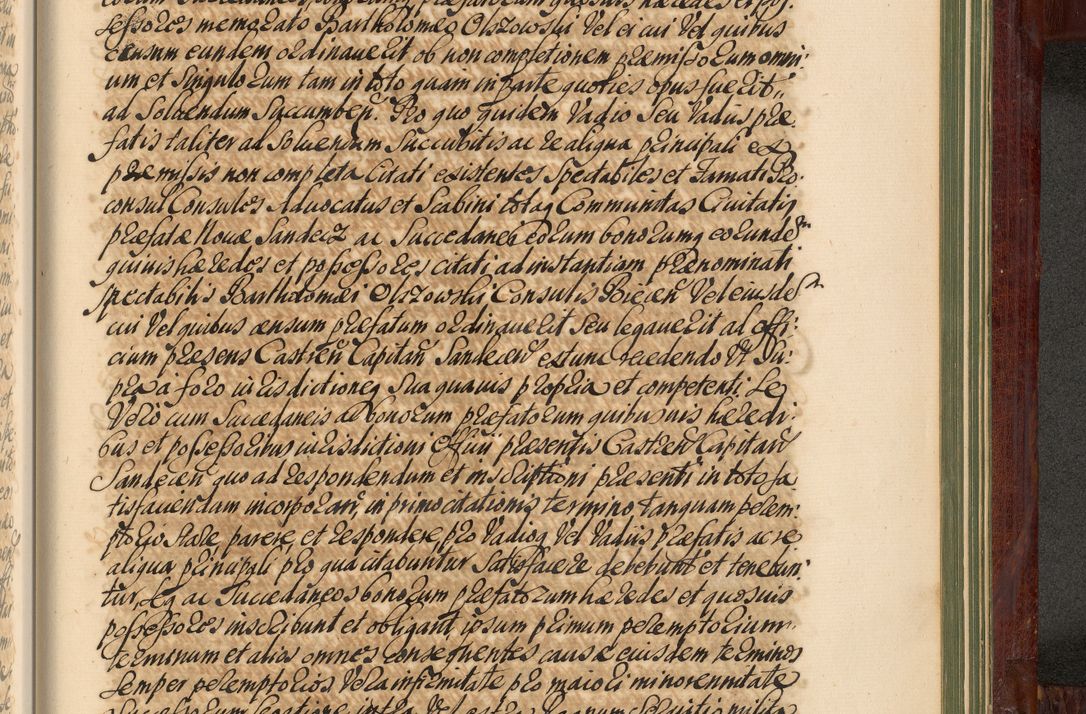 sessores memorato Bartholomeo Olszowski Vel ei cui Vel quibus
censum eundem ordinauerit ob non completionem præmissorum omni
um et Singulorum tam in toto quam in parte quoties opus fuerit
ad Soluendum Succumben. Pro quo quidem Vadio Seu Vadiis præ
fatis taliter ad Soluendum Succubitis ac re aliqua principali ex
præmissis non completa Citati existentes Spectabiles et Famati Pro
consul Consules Aduocatus et Scabini totaq Communitas Ciuitatis
præfatæ Nouæ Sandecz ac Succedanei eorum bonorumq eorunde
quiuis hæredes et possessores citati ad instantiam prænominati
Spectabilis Bartholomæi Olszowski Consulis Biecen Vel eiusde
cui Vel quibus censum præfatum ordinauerit Seu legauerit ad offi:
cium præsens Castren Capitan Sandecen extunc recedendo Vt Su:
pra à foro iurisdictioneq sua quauis propria et competenti. Se
Vero cum Succedaneis ac bonorum præfatorum quibusuis hæredi:
bus et possessoribus iurisdictioni officii præsentis Castren Capitan
Sandecen quo ad respondendum et inscriptioni præsenti in toto sa
tisfaciendum incorporan, in primo citationis termino tanquam perem:
ptorio stare, parere, et respondere, pro Vadioq Vel Vadiis præfatis ac re
aliqua principali pro qua citabuntur satisfacere debebunt et tenebun:
tur, Seq ac Succedaneos bonorum præfatorum hæredes et quosuis
possessores inscribunt et obligant, ipsum primum peremptorium
terminum et alios omnes consequentes causæ eiusdem terminos
Semper peremptorios Vera infirmitate pro maiori minorennitate